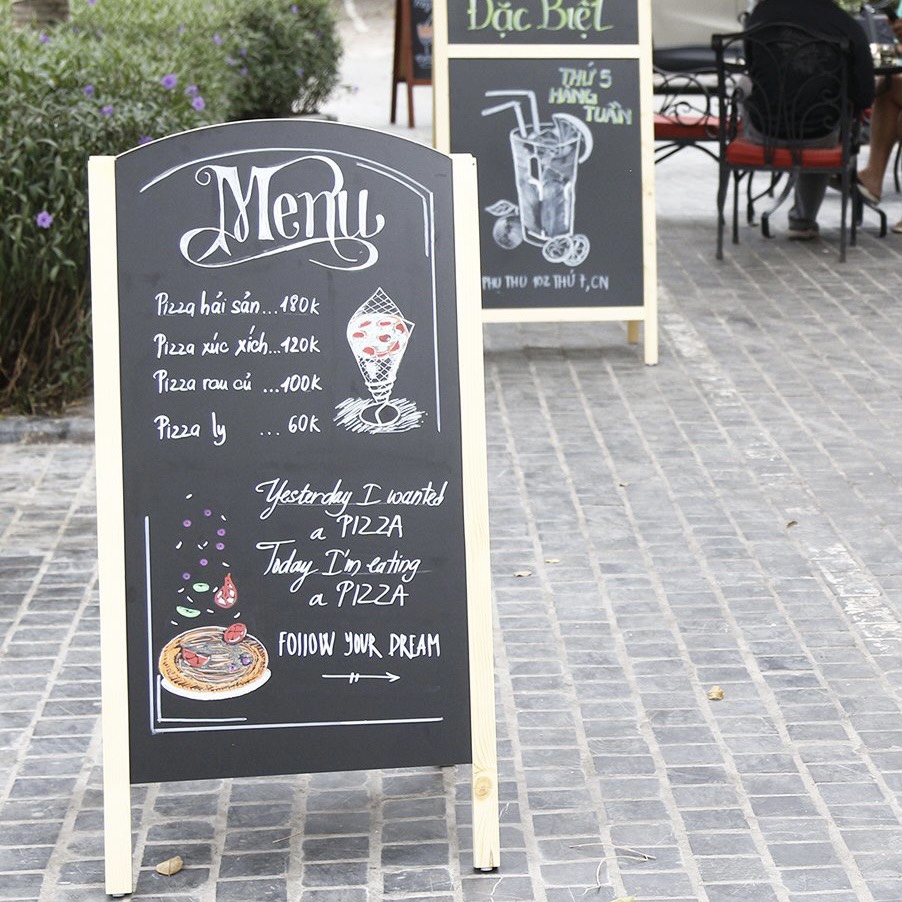 Menu
Pizza hải sản ... 180K
Pizza xúc xích ... 120K
Pizza rau củ ... 100K
Pizza ly ... 60K
Yesterday I wanted
a PIZZA
Today I'm eating
a PIZZA
FOllOW YOUR DREAM
Đặc Biệt
THỨ 5
HÀNG
TUẦN
PHỤ THU 10% THỨ 7, CN